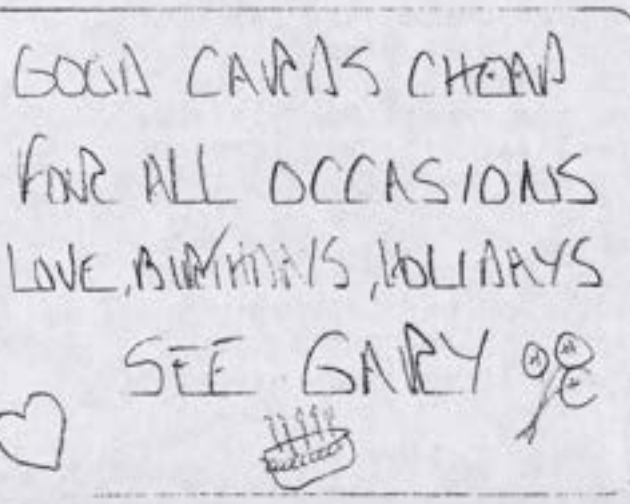 GOOD CARDS CHEAP
FOR ALL OCCASIONS
LOVE, BIRTHDAYS, HOLIDAYS
SEE GARY